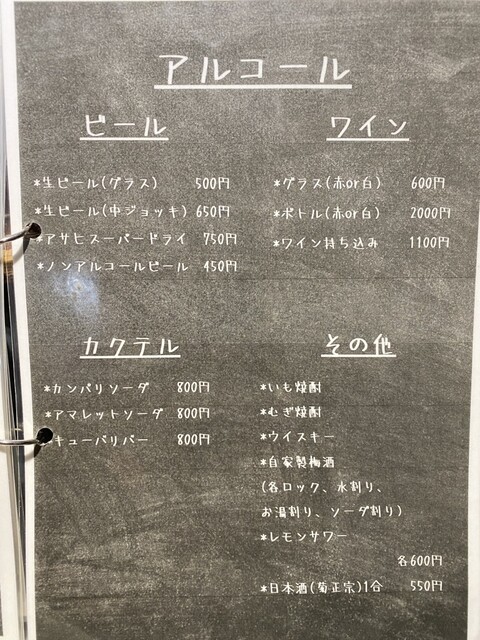 アルコール
ビール
*生ビール(グラス) 500円
*生ビール(中ジョッキ) 650円
*アサヒスーパードライ 750円
*ノンアルコールビール 450円
ワイン
*グラス(赤or白) 600円
*ボトル(赤or白) 2000円
*ワイン持ち込み 1100円
カクテル
*カンパリソーダ 800円
*アマレットソーダ 800円
キューバリバー 800円
その他
*いも焼酎
*むぎ焼酎
*ウイスキー
*自家製梅酒
(各ロック、水割り、
お湯割り、ソーダ割り)
*レモンサワー
各600円
*日本酒(菊正宗)1合 550円